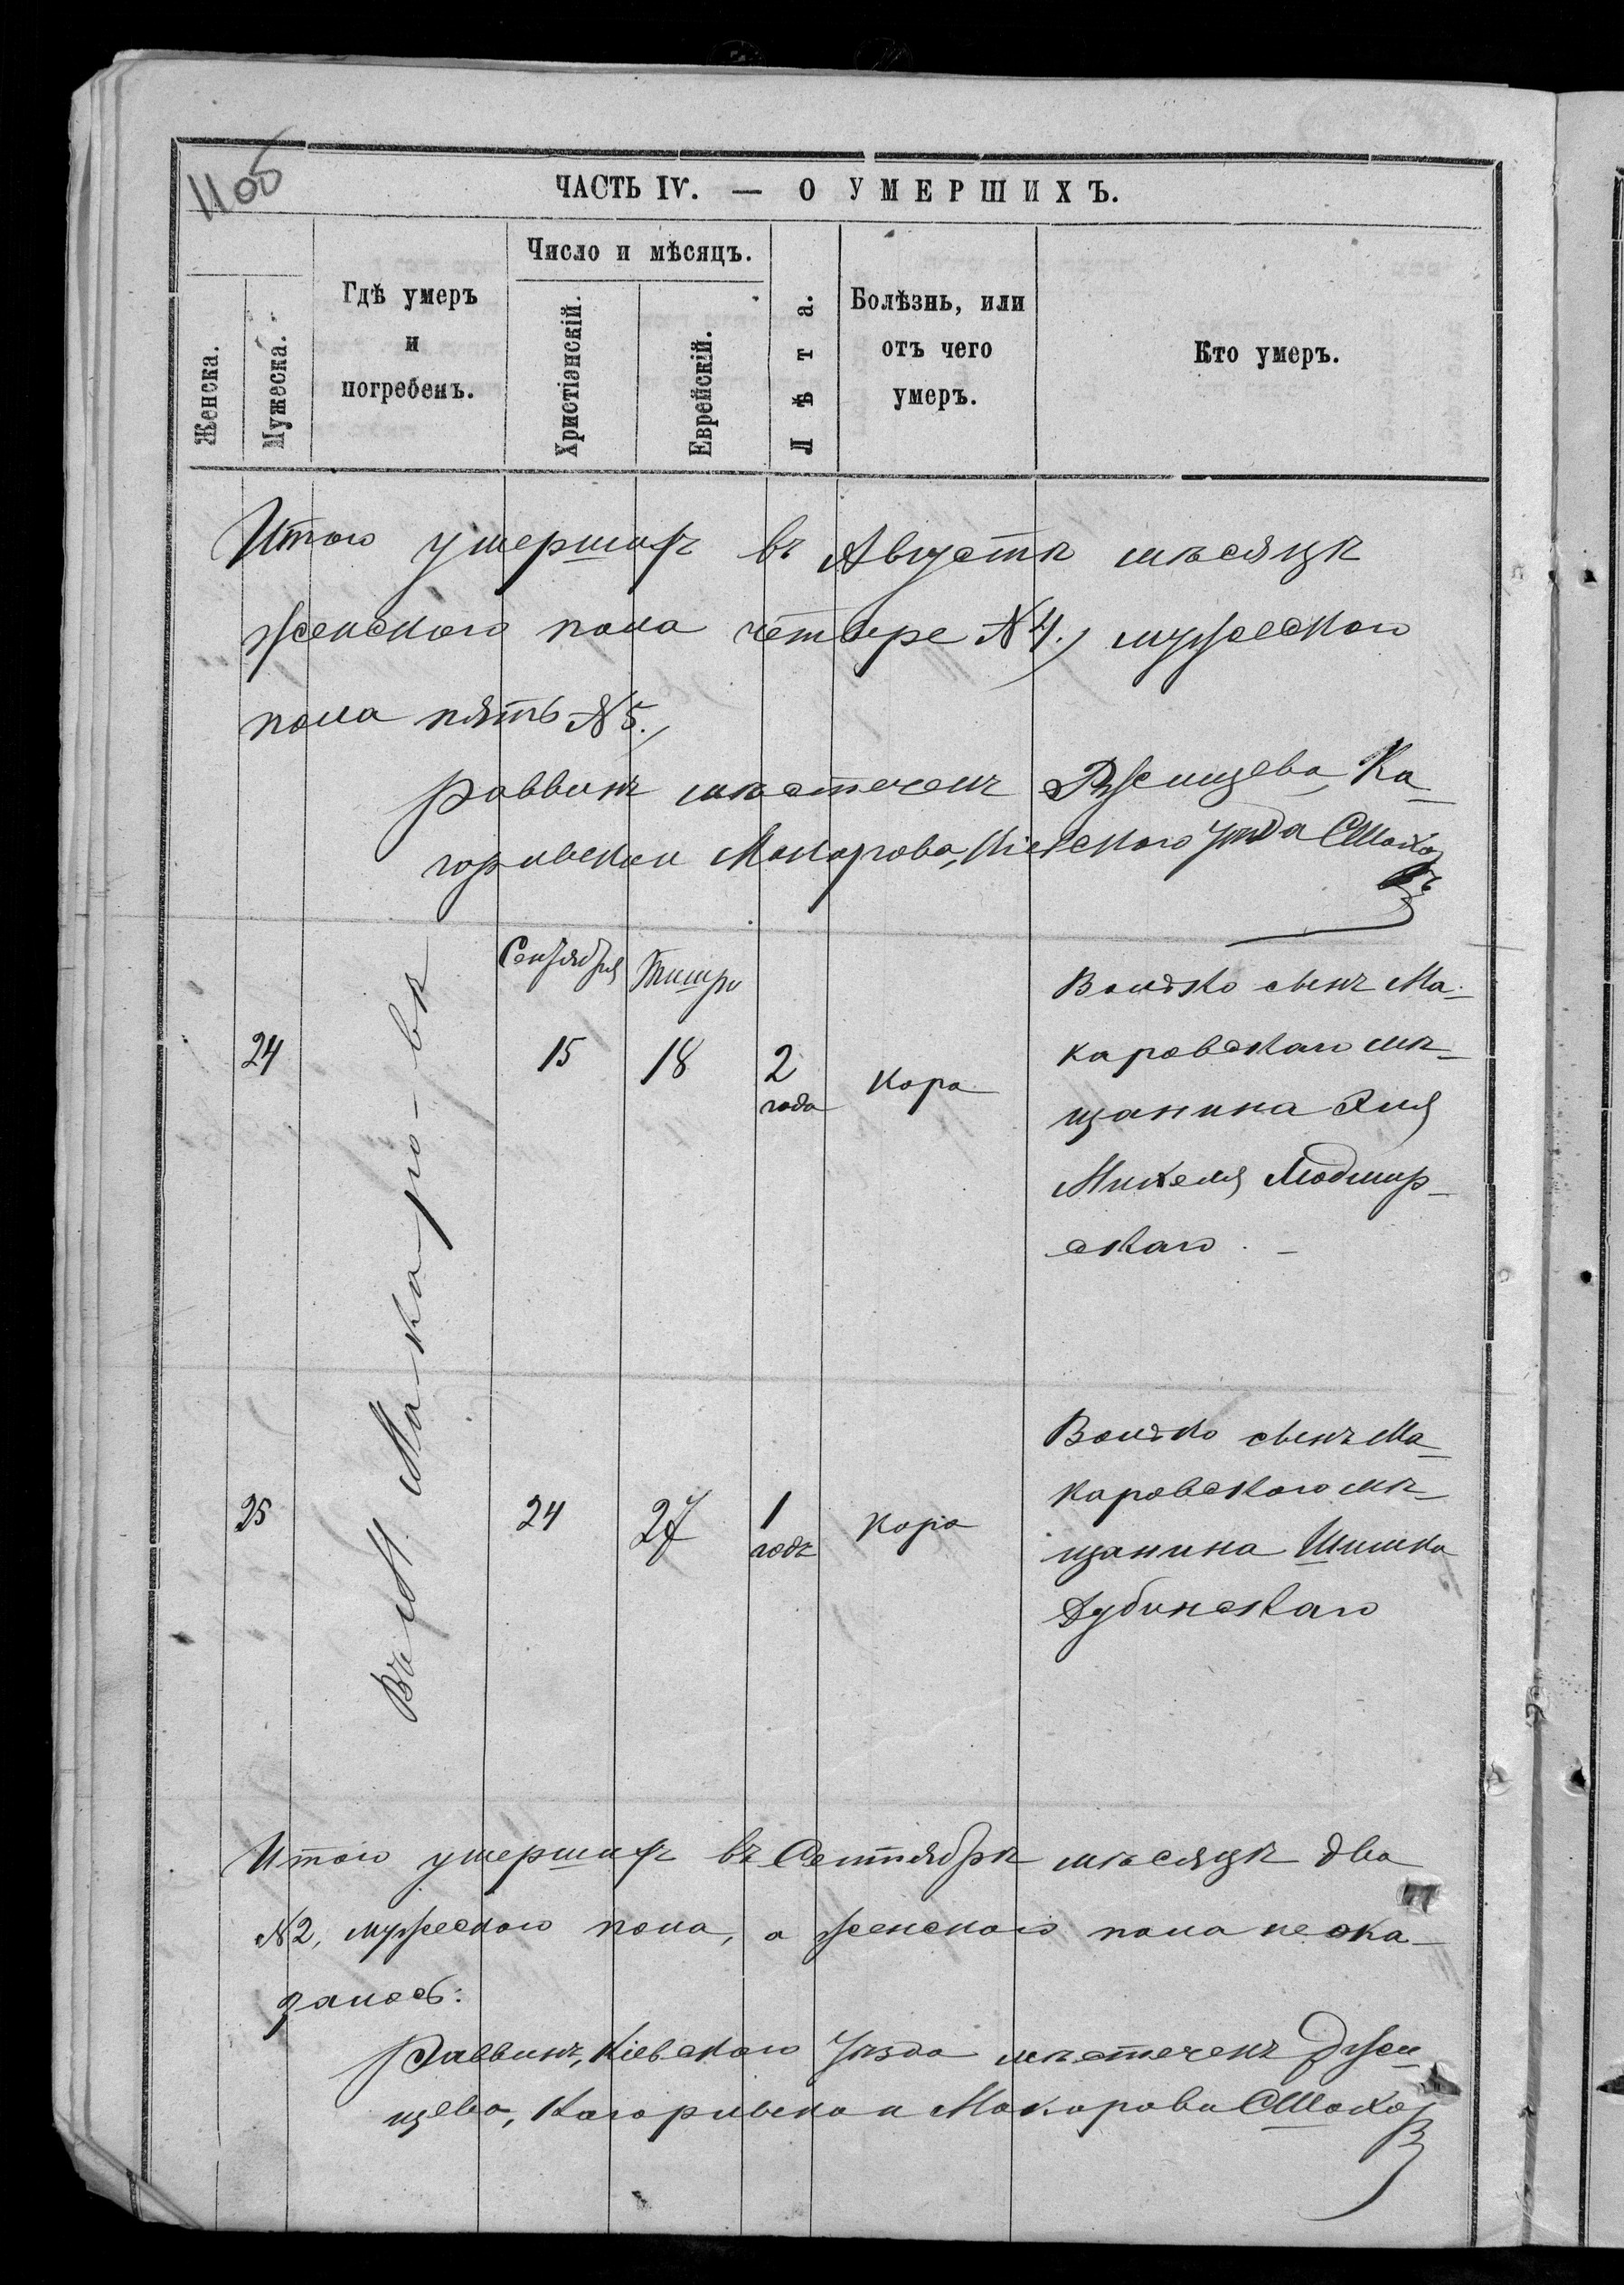 110б
ЧАСТЬ IV. — О УМЕРШИХЪ.
Женска.
Мужеска.
Гдѣ умеръ
и
погребенъ.
Число и мѣсяцъ.
Христіанскій.
Еврейскій.
Лѣта.
Болѣзнь, или
отъ чего
умеръ.
Кто умеръ.
Итого умершихъ въ Августѣ мѣсяцѣ
женского пола четыре №4, мужеского
пола пять №5.
Раввинъ мѣстечекъ Ржищева, Ка-
горлыка и Макарова, Кіевского уѣзда
Въ М. Макаро-вѣ
Сентября Тишри
24 15 18 2 года Кора
Волько сынъ Ма-
каровскаго мѣ-
щанина
Михеля Людмир-
скаго. -
25 24 27 1 годъ Кора
Волько сынъ Ма-
каровского мѣ-
щанина Шимка
Дубинскаго
Итого умершихъ въ Сентябрѣ мѣсяцѣ два
№2, мужеского пола, а женского пола не ока-
залось:
Раввинъ, Кіевского уѣзда мѣстечекъ Ржи-
щева, Кагорлыка и Макарова